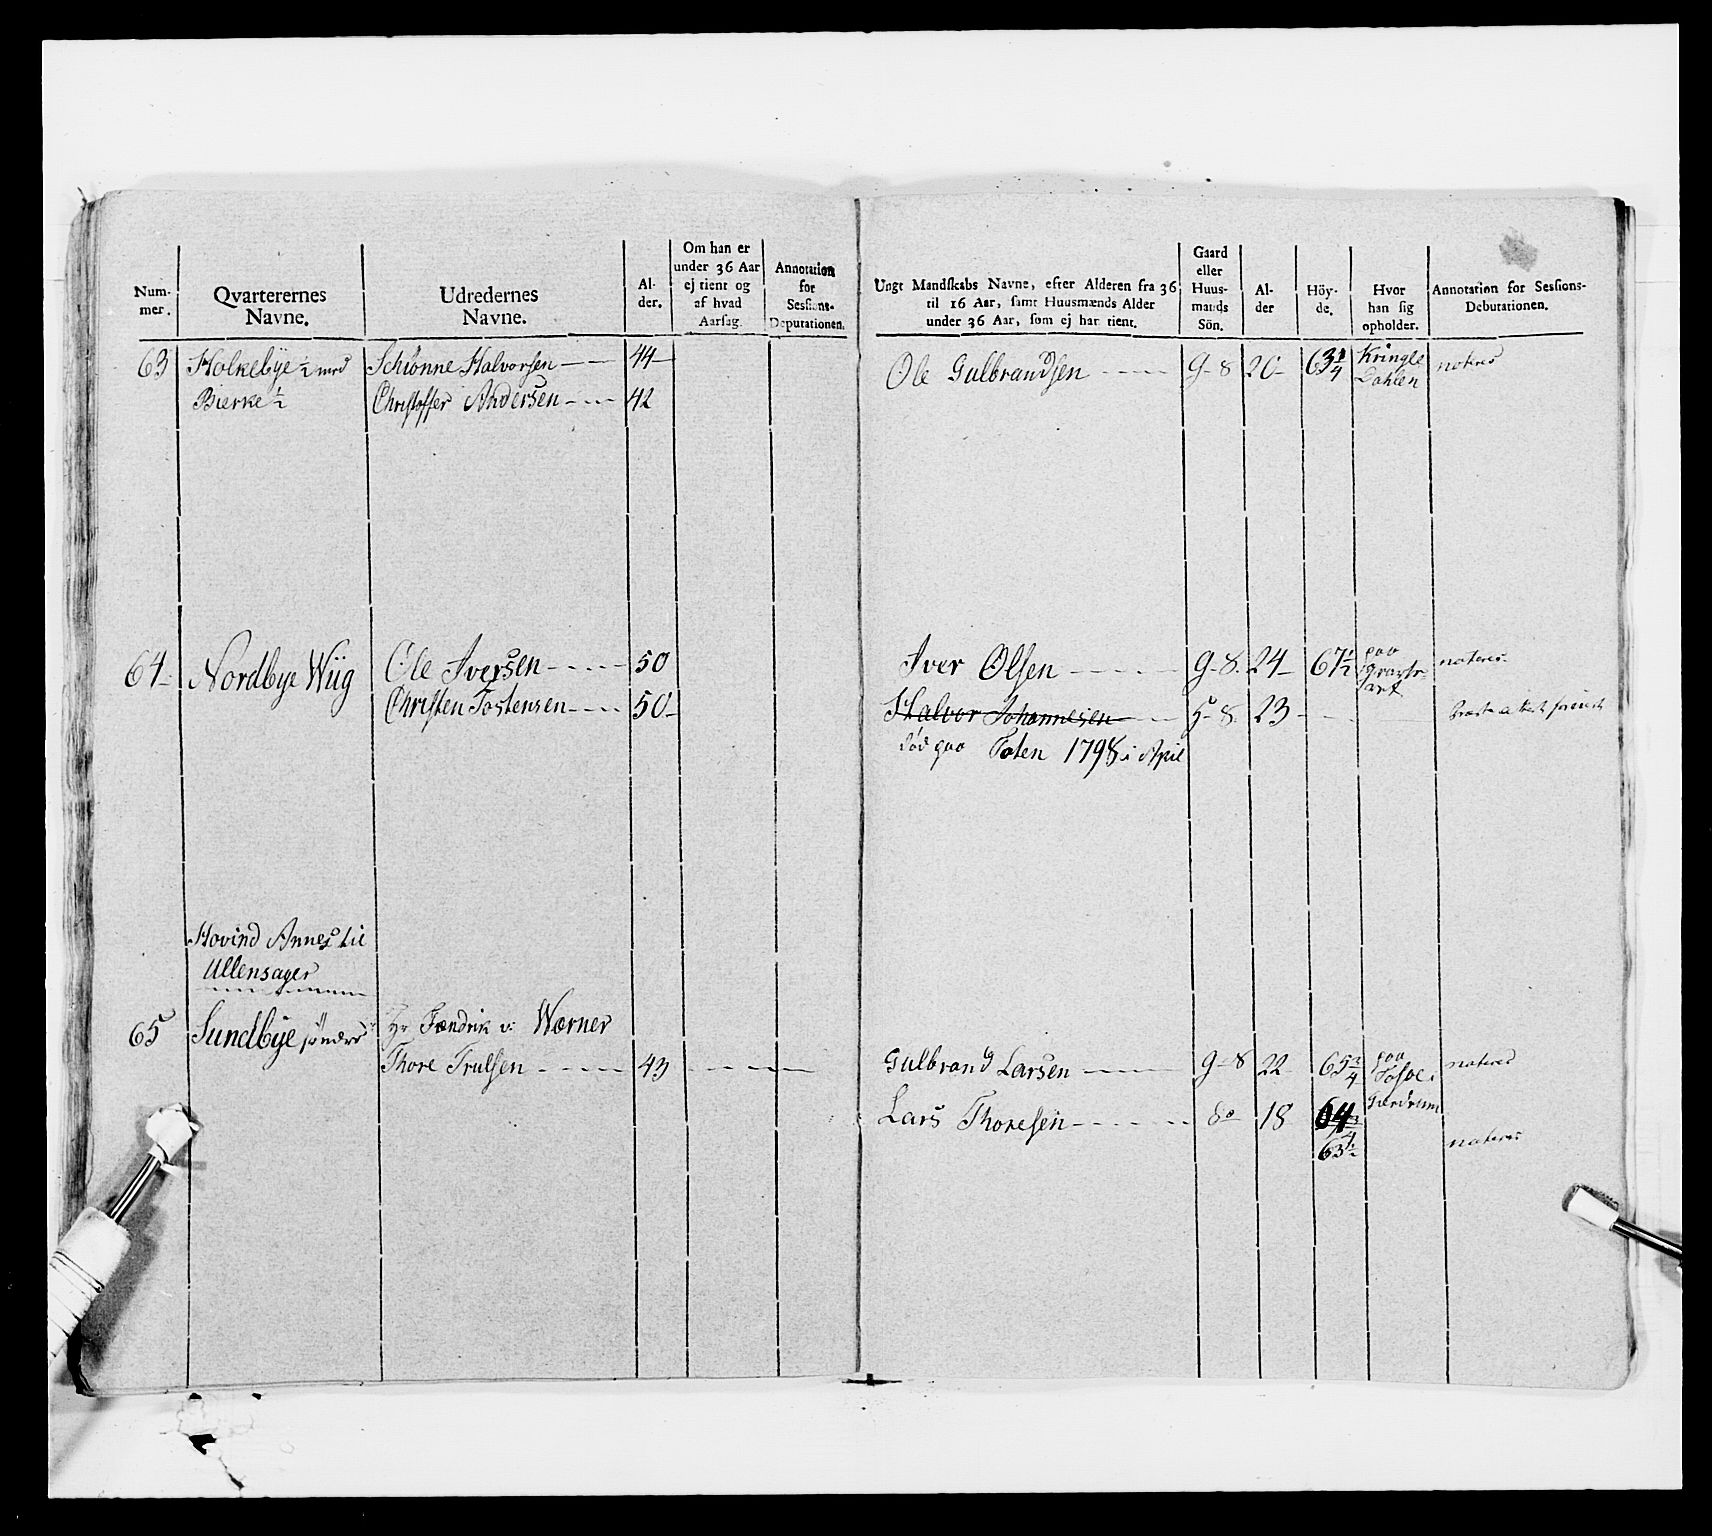 Num-
mer.
Qvarterernes
Navne.
Udredernes
Navne.
Al-
der.
Om han er
under 36 Aar
ej tient og
af hvad
Aarsag.
Annotation
for
Sessions-
Deputationen.
Ungt Mandskabs Navne, efter Alderen fra 36
til 16 Aar, samt Huusmænds Alder
under 36 Aar, som ej har tient.
Gaard
eller
Huus-
mands
Sön.
Al-
der
Höy-
de.
Hvor
han sig
opholder.
Annotation for Sessions-
Debutationen.
63 Holkebye ½ med Schiönne Halvorsen 44
Bierke ½ Christoffer Andersen 42
Ole Gulbrandsen G-8 20 63¾ Kringle noteres
Dahlen
64 Nordbye Wiig Ole Iversen 50
Christen Tostensen 50
Iver Olsen G-8. 24 67½ paa noteres
Halvor Johannesen G-8. 23
död paa Toten 1798 i April
Hovind Annex til
Ullensager
65 Sundbye söndre Hr Fændrik v: Wærner
Thore Trulsen 43
Gulbrand Larsen G-8 22 65¾ paa noteret
Lars Thoresen 8 18 64 Gierdrum
63½ noteres